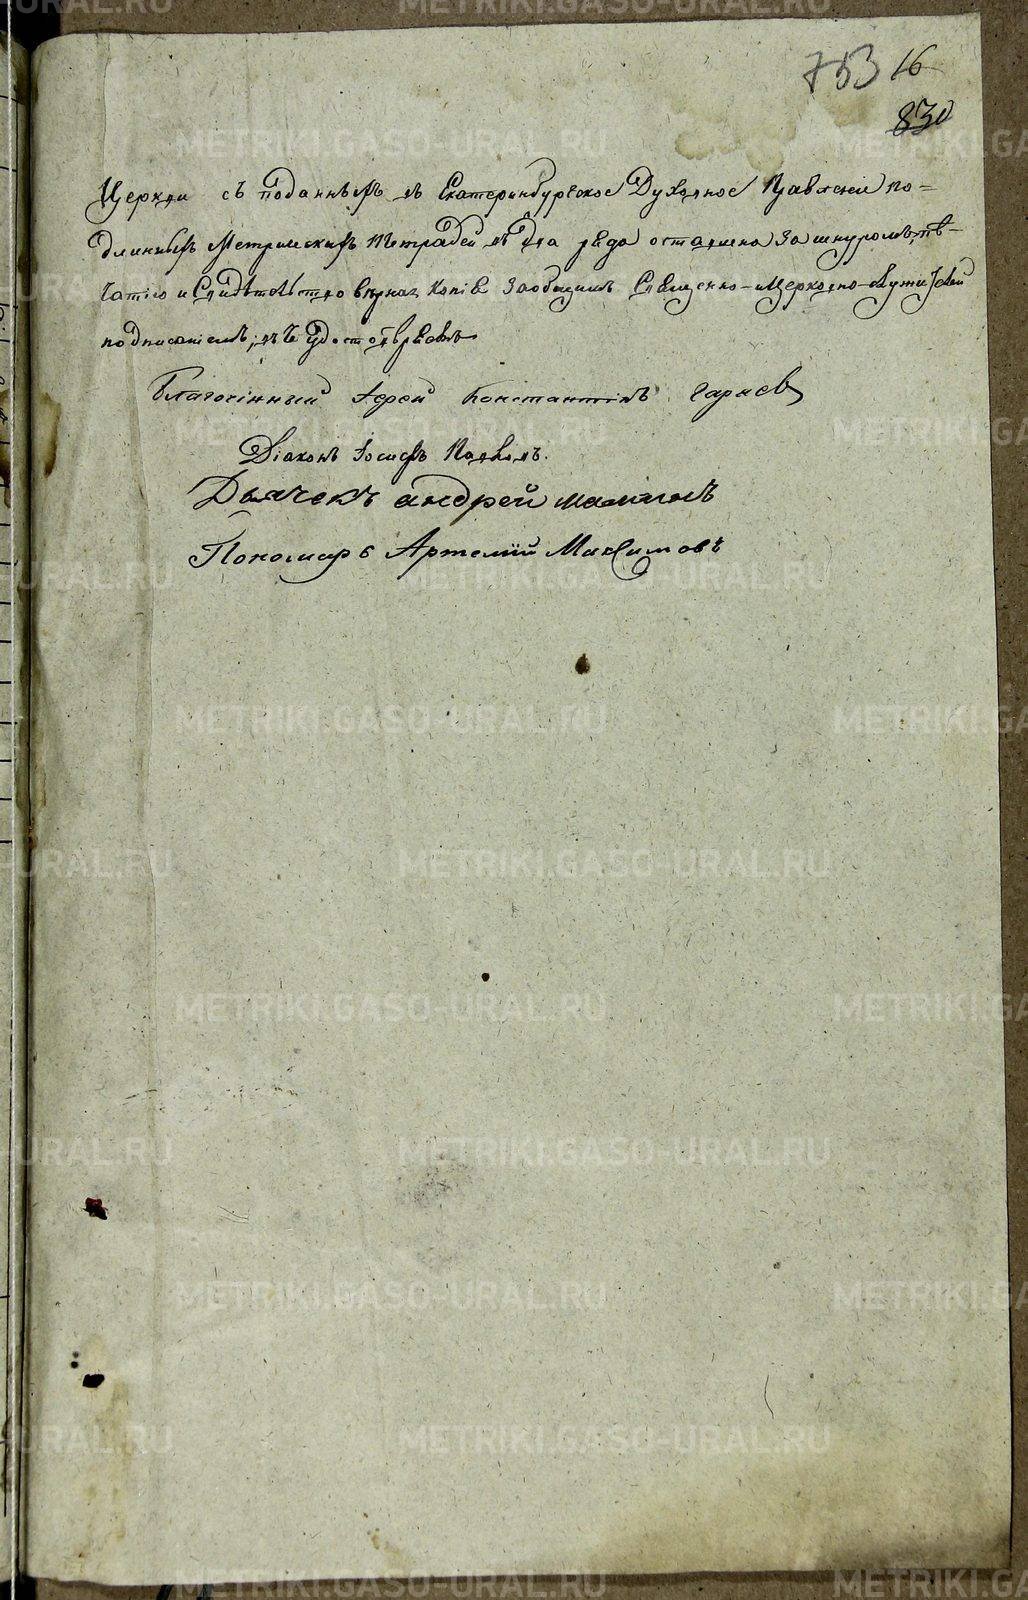 753 16
830
Церкви съ поданныхъ въ Екатеринбургское Духовное Правленіе по=
длинныхъ Метрическихъ тетрадей въ два ряда оставлена за шнуромъ, пѣ-
чатію и Свидѣтельство вѣрная Копія Заобщимъ Священно-церковно-служителей
подписаніемъ; въ чемъ удостовѣряемъ
Благочинный Іерей Константинъ
Діаконъ Іосифъ
Дьячекъ андрей маминъ
Пономарь Артемій Максимовъ
METRIKI.GASO-URAL.RU